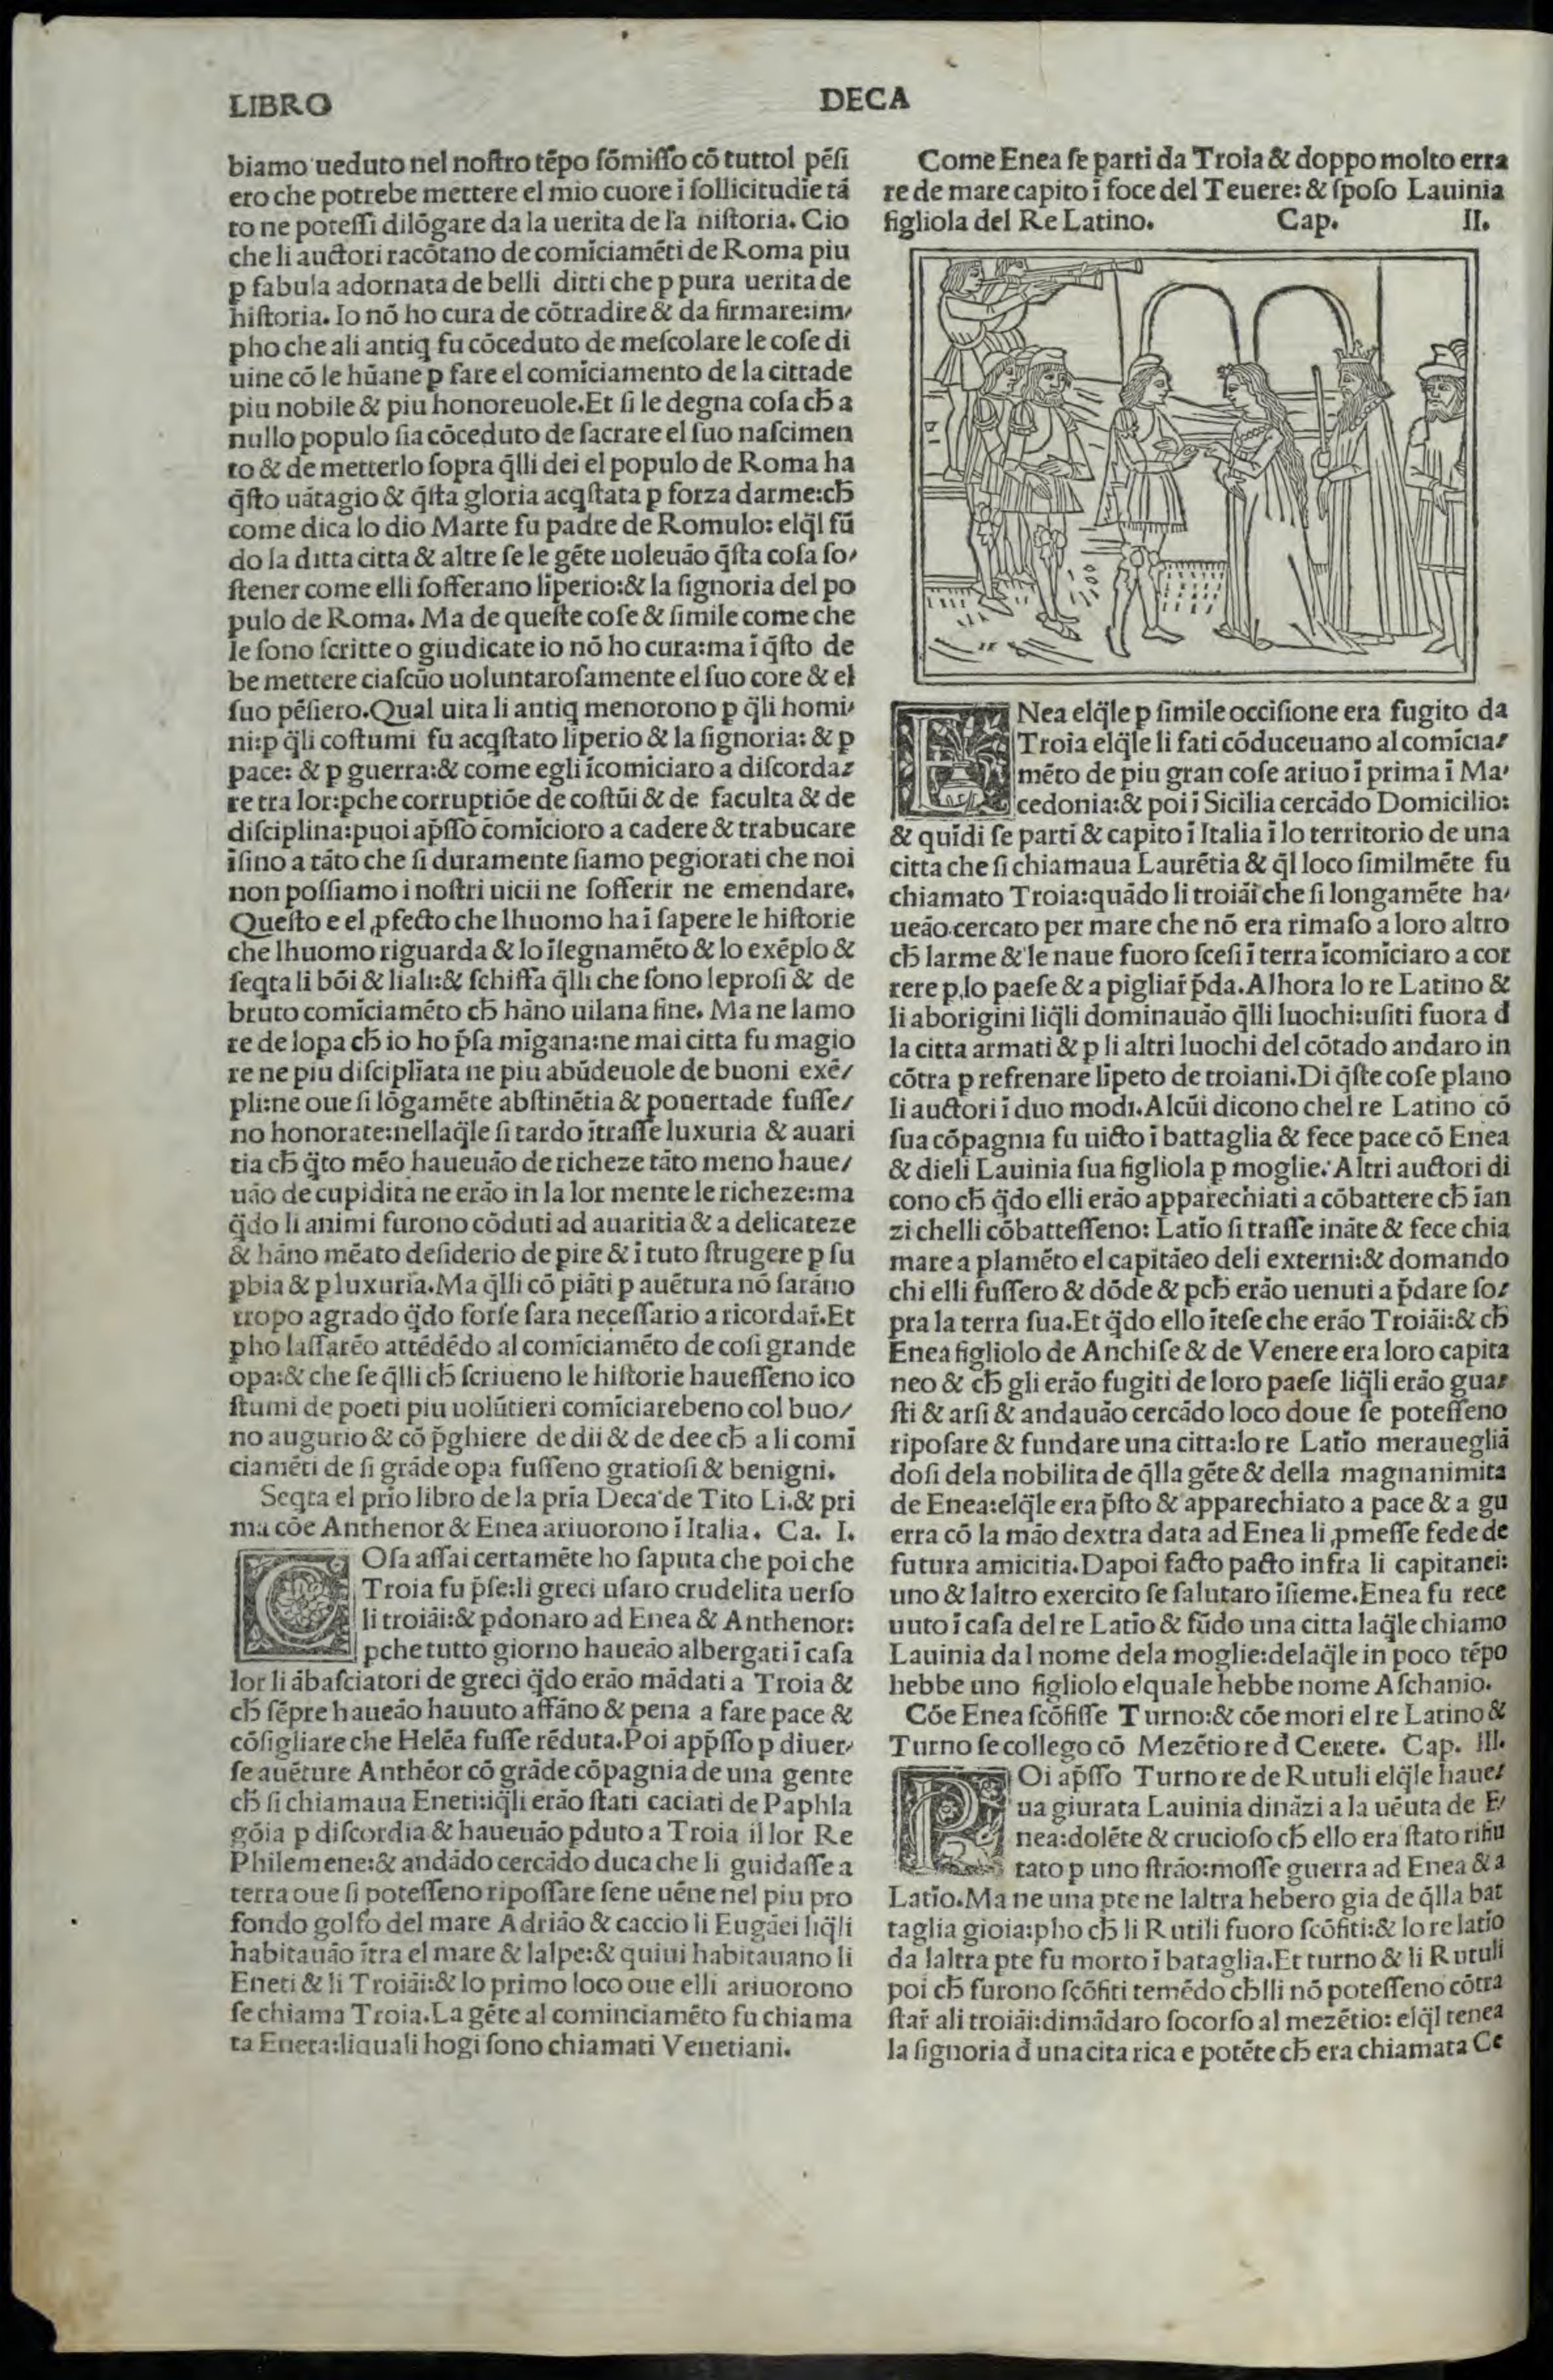 LIBRO
DECA
biamo ueduto nel noſtro tēpo ſōmiſſo cō tuttol pēſi
ero che potrebe mettere el mio cuore ī ſollicitudīe tā
to ne poteſſi dilōgare da la uerita de la hiſtoria. Cio
che li auctori racōtano de comīciamēti de Roma piu
ꝑ fabula adornata de belli ditti che ꝑ pura uerita de
hiſtoria. Io nō ho cura de cōtradire & da firmare:im⸗
ꝑho che ali antiq fu cōceduto de meſcolare le coſe di
uine cō le hūane ꝑ fare el comīciamento de la cittade
piu nobile & piu honoreuole.Et ſi le degna coſa cħ a
nullo populo ſia cōceduto de ſacrare el ſuo naſcimen
to & de metterlo ſopra q̄lli dei el populo de Roma ha
q̄ſto uātagio & q̄ſta gloria acqſtata ꝑ forza darme:cħ
come dica lo dio Marte fu padre de Romulo: elq̄l fū
do la ditta citta & altre ſe le gēte uoleuāo q̄ſta coſa ſo⸗
ſtener come elli ſofferano līperio:& la ſignoria del po
pulo de Roma. Ma de queſte coſe & ſimile come che
le ſono ſcritte o giudicate io nō ho cura:ma ī q̄ſto de
be mettere ciaſcūo uoluntaroſamente el ſuo core & el
ſuo pēſiero.Qual uita li antiq menorono ꝑ q̄li homi⸗
ni:ꝑ q̄li coſtumi fu acqſtato līperio & la ſignoria: & ꝑ
pace: & ꝑ guerra:& come egli īcomiciaro a diſcorda⸗
re tra lor:ꝑche corruptiōe de coſtūi & de faculta & de
diſciplina:puoi ap̄ſſo comīcioro a cadere & trabucare
īſino a tāto che ſi duramente ſiamo pegiorati che noi
non poſſiamo i noſtri uicii ne ſofferir ne emendare.
Queſto e el ꝓfecto che lhuomo ha ī ſapere le hiſtorie
che lhuomo riguarda & lo īſegnamēto & lo exēplo &
ſeqta li bōi & liali:& ſchiffa q̄lli che ſono leproſi & de
bruto comīciamēto cħ hāno uilana fine. Ma ne lamo
re de lopa cħ io ho p̄ſa mīgana:ne mai citta fu magio
re ne piu diſciplīata ne piu abūdeuole de buoni exē⸗
pli:ne oue ſi lōgamēte abſtinētia & pouertade fuſſe⸗
no honorate:nellaq̄le ſi tardo ītraſſe luxuria & auari
tia cħ q̄to mēo haueuāo de richeze tāto meno haue⸗
uāo de cupidita ne erāo in la lor mente le richeze:ma
q̄do li animi furono cōduti ad auaritia & a delicateze
& hāno mēato deſiderio de ꝑire & ī tuto ſtrugere ꝑ ſu
ꝑbia & ꝑ luxuria.Ma q̄lli cō piāti ꝑ auētura nō ſarāno
tropo agrado q̄do forſe ſara neceſſario a ricordar̄.Et
ꝑho laſſarēo attēdēdo al comīciamēto de coſi grande
opa:& che ſe q̄lli cħ ſcriueno le hiſtorie haueſſeno ico
ſtumi de poeti piu uolūtieri comīciarebeno col buo⸗
no augurio & cō p̄ghiere de dii & de dee cħ a li comī
ciamēti de ſi grāde opa fuſſeno gratioſi & benigni.
Seqta el prīo libro de la pria Deca de Tito Li.& pri
ma cōe Anthenor & Enea ariuorono ī Italia. Ca. I.
COſa aſſai certamēte ho ſaputa che poi che
Troia fu p̄ſe:li greci uſaro crudelita uerſo
li troiāi:& ꝑdonaro ad Enea & Anthenor:
ꝑche tutto giorno haueāo albergati ī caſa
lor li ābaſciatori de greci q̄do erāo mādati a Troia &
cħ ſēpre haueāo hauuto affāno & pena a fare pace &
cōſigliare che Helēa fuſſe rēduta.Poi app̄ſſo ꝑ diuer⸗
ſe auēture Anthēor cō grāde cōpagnia de una gente
cħ ſi chiamaua Eneti:iq̄li erāo ſtati caciati de Paphla
gōia ꝑ diſcordia & haueuāo ꝑduto a Troia il lor Re
Philemene:& andādo cercādo duca che li guidaſſe a
terra oue ſi poteſſeno ripoſſare ſene uēne nel piu pro
fondo golfo del mare Adriāo & caccio li Eugāei liq̄li
habitauāo ītra el mare & lalpe:& quiui habitauano li
Eneti & li Troiāi:& lo primo loco oue elli ariuorono
ſe chiama Troia.La gēte al cominciamēto fu chiama
ta Eneta:liquali hogi ſono chiamati Venetiani.
Come Enea ſe parti da Troia & doppo molto erra
re de mare capito ī foce del Teuere: & ſpoſo Lauinia
figliola del Re Latino. Cap. II.
ENea elq̄le ꝑ ſimile occiſione era fugito da
Troia elq̄le li fati cōduceuano al comīcia⸗
mēto de piu gran coſe ariuo ī prima ī Ma⸗
cedonia:& poi ī Sicilia cercādo Domicilio:
& quīdi ſe parti & capito ī Italia ī lo territorio de una
citta che ſi chiamaua Laurētia & q̄l loco ſimilmēte fu
chiamato Troia:quādo li troiāi che ſi longamēte ha⸗
ueāo cercato per mare che nō era rimaſo a loro altro
cħ larme & le naue fuoro ſceſi ī terra īcomīciaro a cor
rere ꝑ lo paeſe & a pigliar̄ p̄da.Alhora lo re Latino &
li aborigini liq̄li dominauāo q̄lli luochi:uſiti fuora đ
la citta armati & ꝑ li altri luochi del cōtado andaro in
cōtra ꝑ refrenare līpeto de troiani.Di q̄ſte coſe ꝑlano
li auctori ī duo modi.Alcūi dicono chel re Latino cō
ſua cōpagnia fu uicto ī battaglia & fece pace cō Enea
& dieli Lauinia ſua figliola ꝑ moglie. Altri auctori di
cono cħ q̄do elli erāo apparechiati a cōbattere cħ īan
zi chelli cōbatteſſeno: Latīo ſi traſſe ināte & fece chia
mare a ꝑlamēto el capitāeo deli externi:& domando
chi elli fuſſero & dōde & ꝑcħ erāo uenuti a p̄dare ſo⸗
pra la terra ſua.Et q̄do ello īteſe che erāo Troiāi:& cħ
Enea figliolo de Anchiſe & de Venere era loro capita
neo & cħ gli erāo fugiti de loro paeſe liq̄li erāo gua⸗
ſti & arſi & andauāo cercādo loco doue ſe poteſſeno
ripoſare & fundare una citta:lo re Latīo merauegliā
doſi dela nobilita de q̄lla gēte & della magnanimita
de Enea:elq̄le era p̄ſto & apparechiato a pace & a gu
erra cō la māo dextra data ad Enea li ꝓmeſſe fede de
futura amicitia.Dapoi facto pacto infra li capitanei:
uno & laltro exercito ſe ſalutaro īſieme.Enea fu rece
uuto ī caſa del re Latīo & fūdo una citta laq̄le chiamo
Lauinia dal nome dela moglie:delaq̄le in poco tēpo
hebbe uno figliolo elquale hebbe nome Aſchanio.
Cōe Enea ſcōfiſſe Turno:& cōe mori el re Latino &
Turno ſe collego cō Mezētio re đ Cerete. Cap. III.
POi ap̄ſſo Turno re de Rutuli elq̄le haue⸗
ua giurata Lauinia dināzi a la uēuta de E⸗
nea:dolēte & crucioſo cħ ello era ſtato rifiu
tato ꝑ uno ſtrāo:moſſe guerra ad Enea & a
Latīo.Ma ne una ꝑte ne laltra hebero gia de q̄lla bat
taglia gioia:ꝑho cħ li Rutili fuoro ſcōfiti:& lo re latīo
da laltra ꝑte fu morto ī bataglia.Et turno & li Rutuli
poi cħ furono ſcōfiti temēdo cħlli nō poteſſeno cōtra
ſtar̄ ali troiāi:dimādaro ſocorſo al mezētio: elq̄l tenea
la ſignoria đ una cita rica e potēte cħ era chiamata Ce